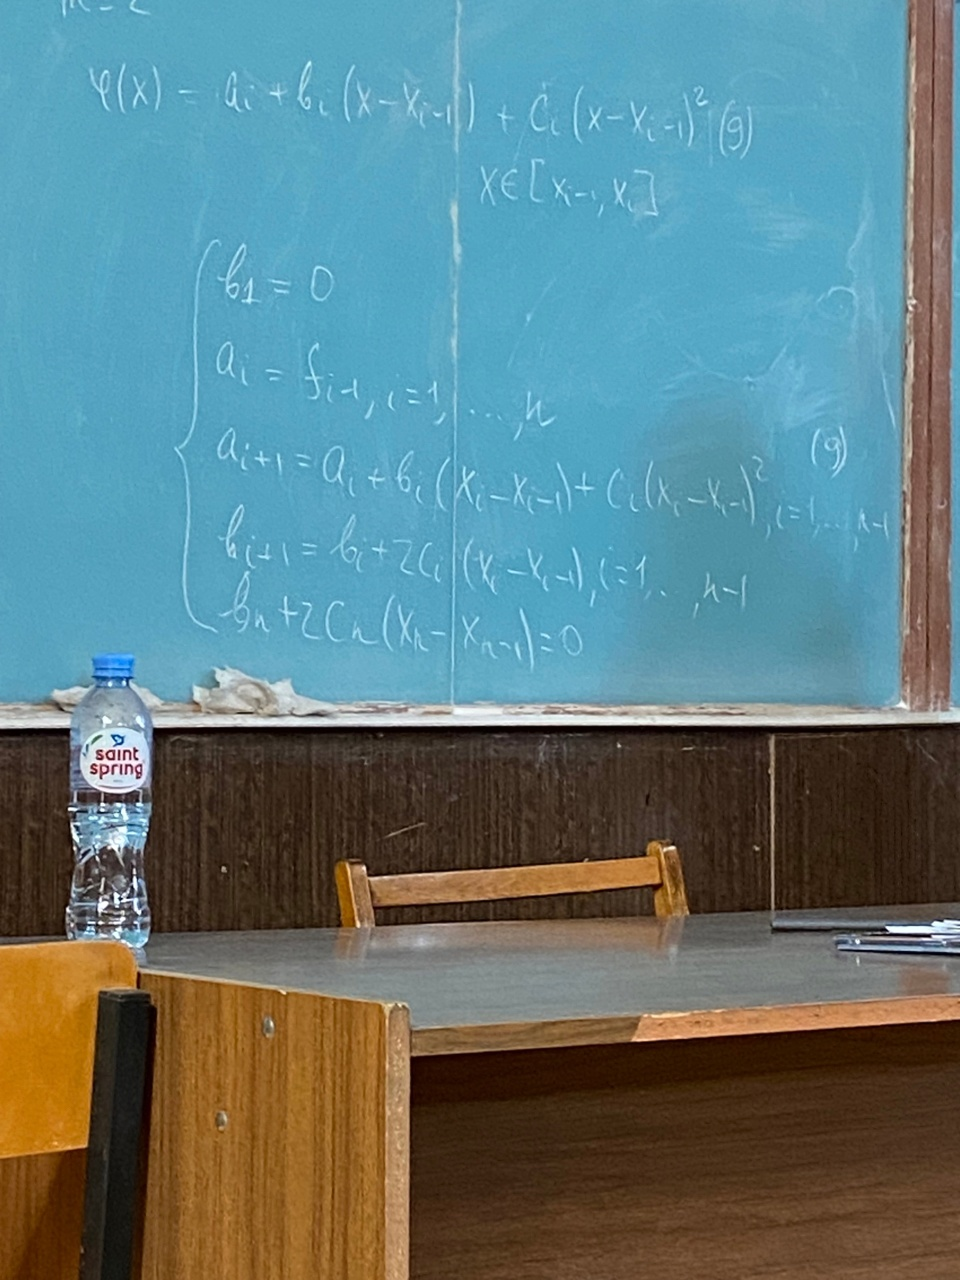 m=2
φ(x) = aᵢ + bᵢ(x-xᵢ₋₁) + cᵢ(x-xᵢ₋₁)² (9)
x∈[xᵢ₋₁, xᵢ]
b₁ = 0
aᵢ = fᵢ₋₁, i=1, ..., n
aᵢ₊₁ = aᵢ + bᵢ(xᵢ-xᵢ₋₁) + cᵢ(xᵢ-xᵢ₋₁)², i=1, ..., n-1 (9)
bᵢ₊₁ = bᵢ + 2cᵢ(xᵢ-xᵢ₋₁), i=1, .., n-1
bₙ + 2cₙ(xₙ-xₙ₋₁) = 0
saint
spring